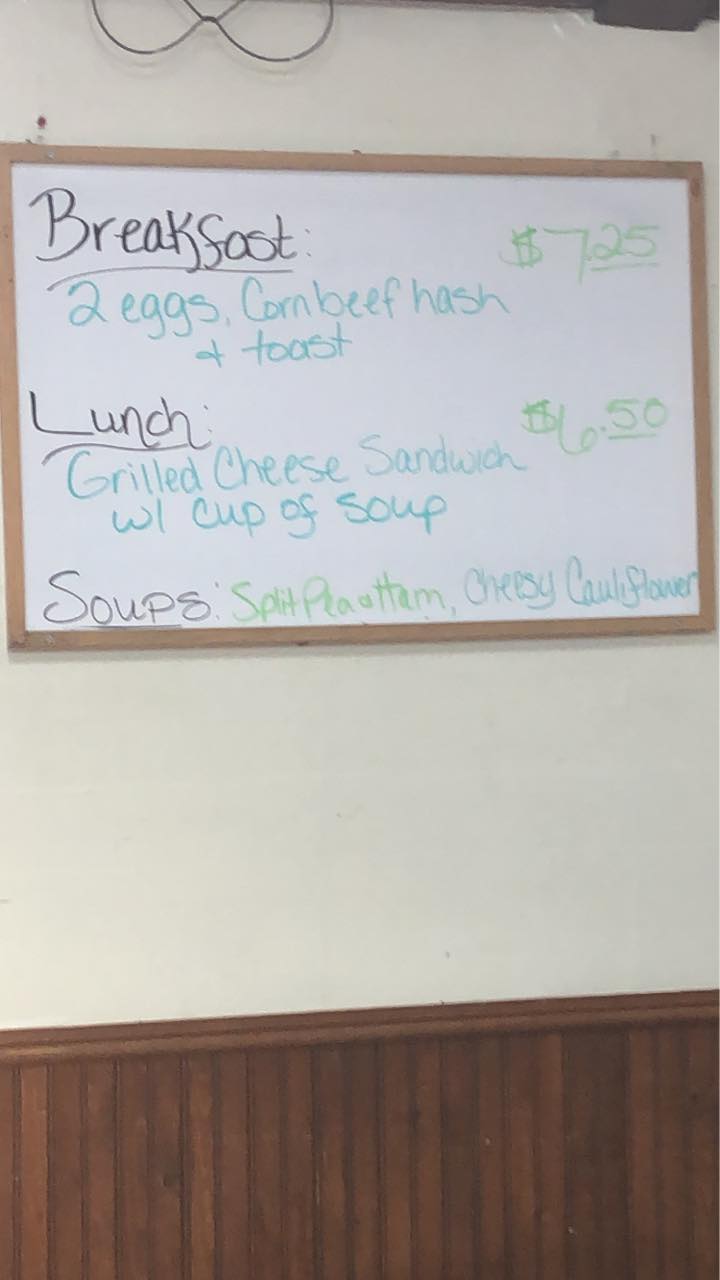 Breakfast: $7.25
2 eggs, Cornbeef hash
& toast
Lunch: $6.50
Grilled Cheese Sandwich
w/ cup of soup
Soups: Split Pea & Ham, Cheesy Cauliflower